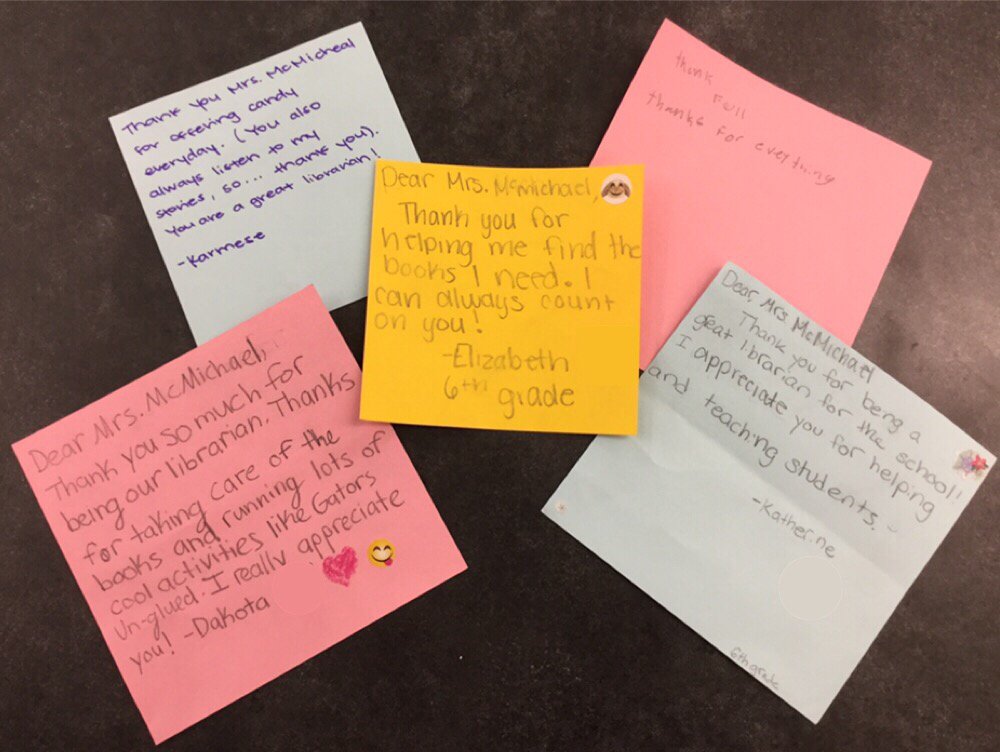 Thank you Mrs. McMicheal
for offering candy
everyday. (You also
always listen to my
stories, so... thank you).
You are a great librarian!
-Karmese
thank
Full
thanks for eveything
Dear Mrs. McMichael,
Thank you for
helping me find the
books I need. I
can always count
on you!
-Elizabeth
6th grade
Dear Mrs. McMichael,
Thank you so much for
being our librarian. Thanks
for taking care of the
books and running lots of
cool activities like Gators
Un-glued. I really appreciate
you! -Dakota
Dear, Mrs. McMichael
Thank you for being a
great librarian for the school!
I appreciate you for helping
and teaching students.
-Katherine
6th grade